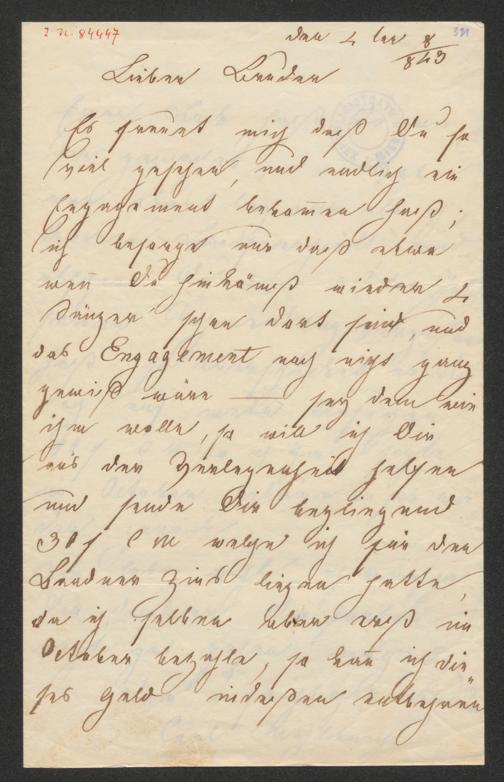 I. N. 84447
321
den 4ten 8/843
Lieber Bruder
Es freuet mich daß Du so
viel gesehen, und endlich ein
Engagement bekommen hast;
ich besorge nur daß etwa
wenn Du hinkömst wieder 4
Sänger schon dort sind, und
das Engagement noch nicht ganz
gewiß wäre — sey dem wie
ihm wolle, so will ich Dir
aus der Verlegenheit helfen
und sende Dir beyliegend
30 f C M welche ich für den
Zins liegen hatte,
da ich selben aber erst im
October bezahle, so kann ich die
ses Geld indeßen entbehren